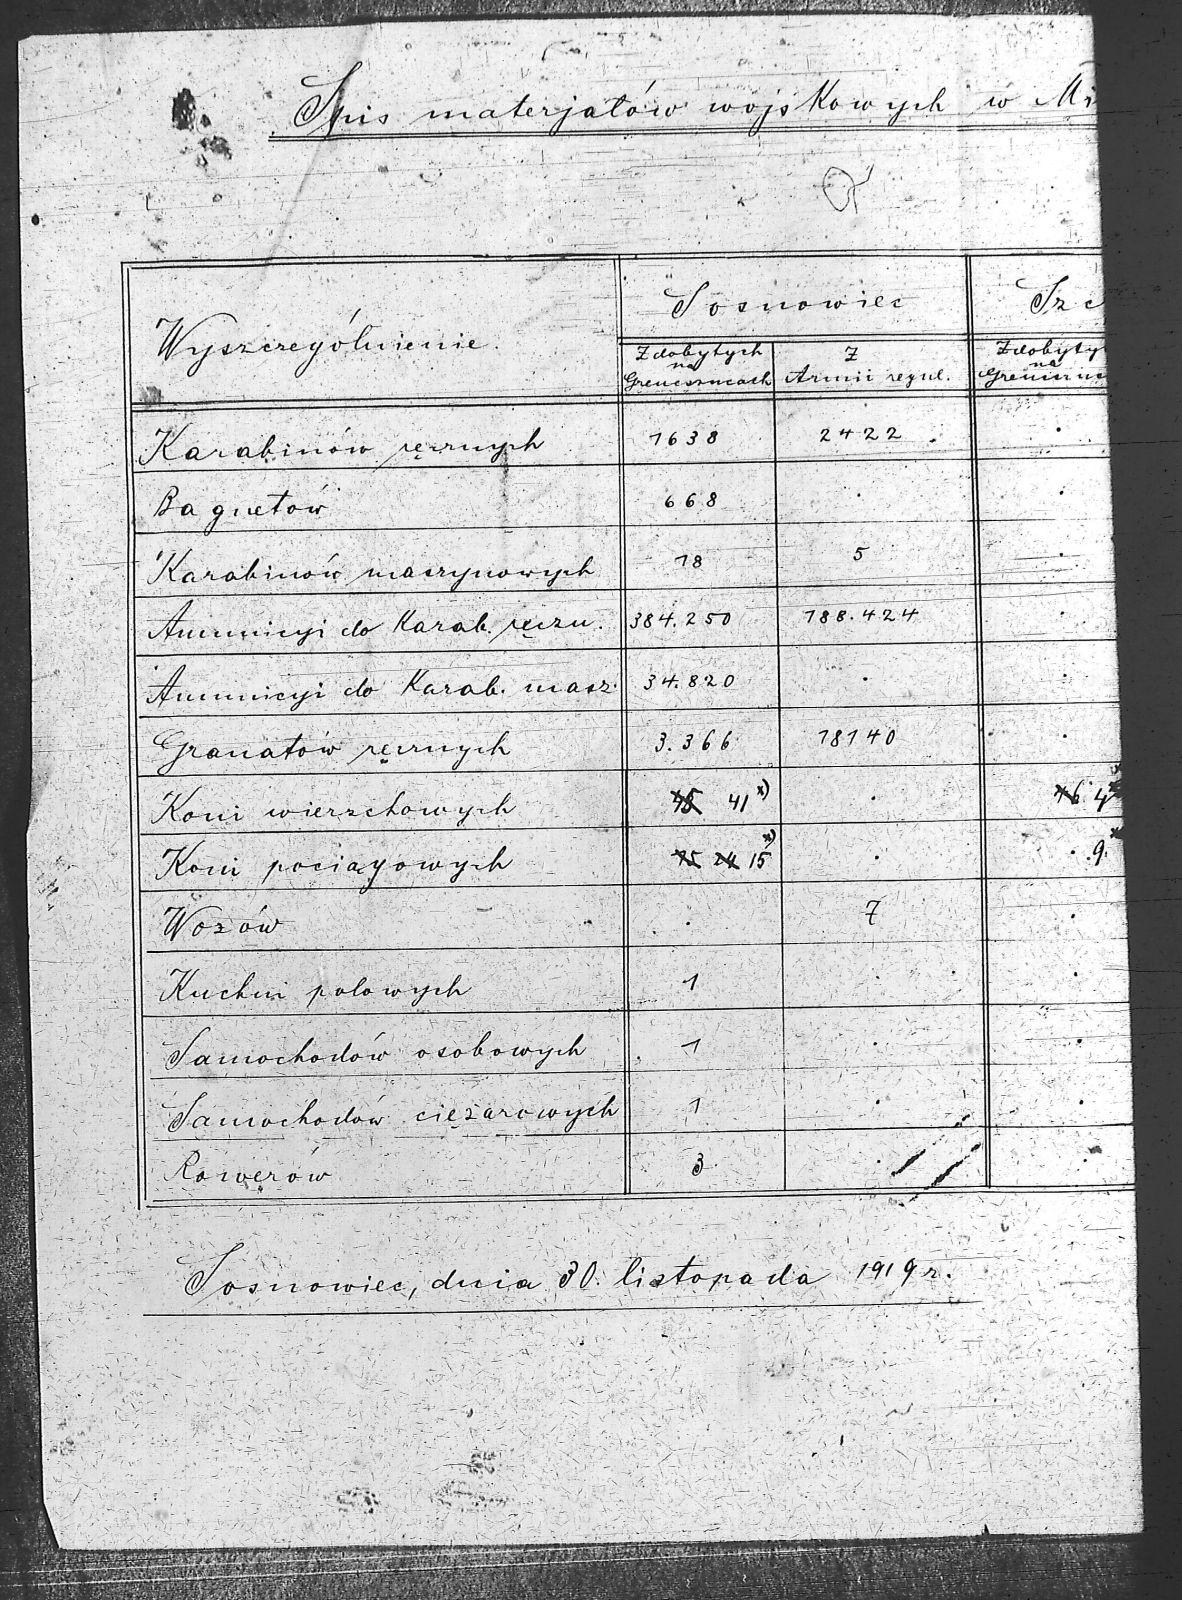 Spis materjałów wojskowych w
Wyszczególnienie.
Sosnowiec
Szc
Zdobytych
na
Grencszucach
Z
Armii regul.
Zdobyty
na
Karabinów ręcznych 1638 2422 . .
Bagnetów 668 . .
Karabinów maszynowych 18 5 .
Amunicyi do Karab. ręczn. 384.250 188.424 .
Amunicyi do Karab. masz. 34.820 . .
Granatów ręcznych 3.366 18140 .
Koni wierzchowych 41 x) . 4
Koni pociągowych 15 x) . . 9.
Wozów . 7 .
Kuchni polowych 1 . .
Samochodów osobowych 1 . .
Samochodów ciężarowych 1 . .
Rowerów 3 . .
Sosnowiec, dnia 30. listopada 1919 r.